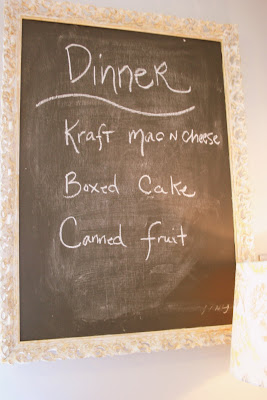 Dinner
Kraft mac n cheese
Boxed Cake
Canned fruit